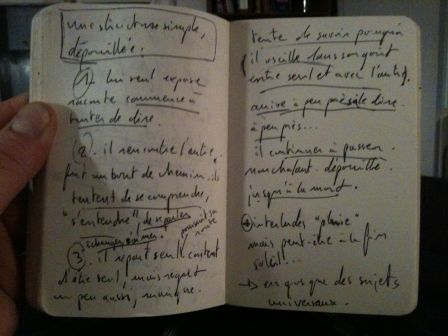 une structure simple,
dépouillée.
1. Un seul exposé
raconte commence à
tenter de dire.
2. il rencontre l'autre,
fait un bout de chemin. ils
tentent de se comprendre,
"s'entendre" de se parler
3. il repart seul content
d'être seul, mais
un peu aussi, manque.
tente de savoir pourquoi
il oscille dans son goût
entre seul et avec l'autre.
arrive à peu près à le dire.
à peu près...
il continue à passer
nonchalant. dépouillé.
jusqu'à la mort.
interludes "pluie"
mais peut-être à la fin
soleil...
→ en gros que des sujets
universaux.